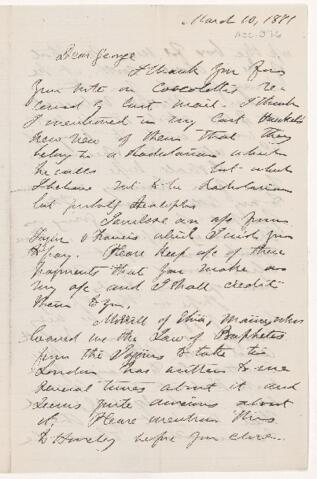 March 10, 1871
Dear George
I thank you for
your note on Coccoliths re-
ceived by last mail. I think
I mentioned in my last Haeckel's
new view of them that they
belong to a Radiolarian which
he calls but which
I believe not to be Radiolarian
but
I enclose an a/c from
Taylor & Francis which I wish you
to pay. Please keep a/c of these
payments that you make on
my a/c and I shall credit
them to you.
Morrill of Maine, who
loaned me the Law of Prophets
from the to take to
London has written to me
several times about it and
seems quite anxious about
it. Please mention this
to before you close.